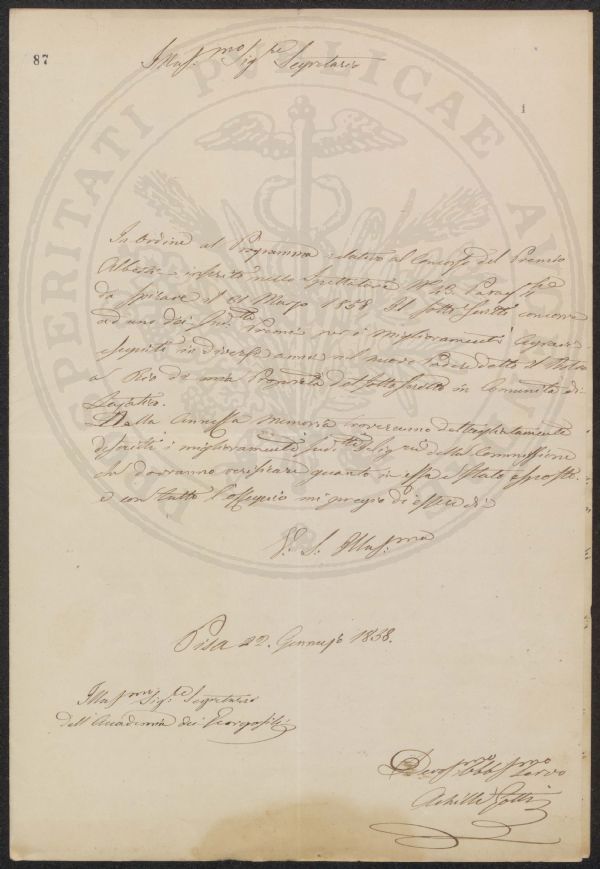 87
1
Illus.mo Sig.re Segretario
In Ordine al Programma relativo al Concorso del Premio
Alberti inserito nello Spettatore N.
da spirare il 31 Marzo 1858 Il Sotto Scritto concorre
ad uno dei Sud.ti Premi per i miglioramenti Agrari
eseguiti in diversi anni nel nuovo Podere detto il
al Rio di mia Proprietà del sottoscritto in Comunità di
Dalla Annessa Memoria troveranno dettagliatamente
descritti i miglioramenti sud.ti i Sig.ri della Commissione
che dovranno verificare quanto in essa è stato esposto
e con tutto l'ossequio mi pregio di essere di
V. S. Illus.ma
Pisa 22. Gennajo 1858.
Illus.mo Sig.re Segretario
dell'Accademia dei Georgofili
Devot.mo Obb.mo Servo
Achille
PROSPERITATI PVBLICAE